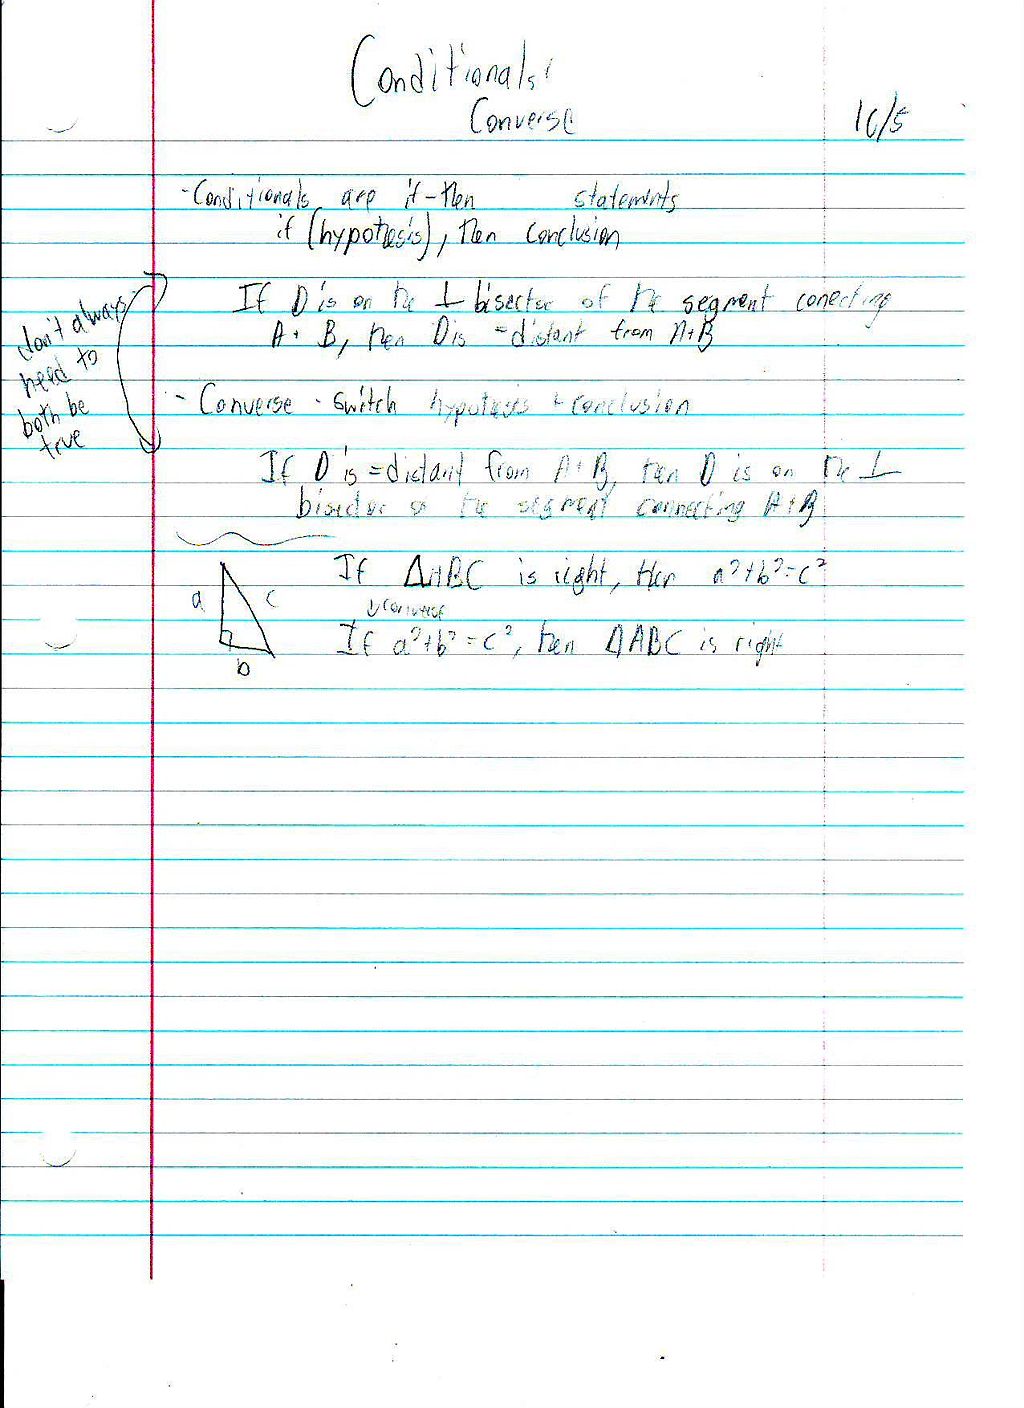 Conditionals:
Converse
10/5
- Conditionals are if-then statements
if (hypothesis), then conclusion
don't always
need to
both be
true
If D is on the ⊥ bisector of the segment conecting
A + B, then D is =distant from A+B
- Converse - switch hypothesis + conclusion
If D is =distant from A+B, then D is on the ⊥
bisector of the segment connecting A+B
a
c
b
If ΔABC is right, then a²+b²=c²
↓ converse
If a²+b²=c², then ΔABC is right